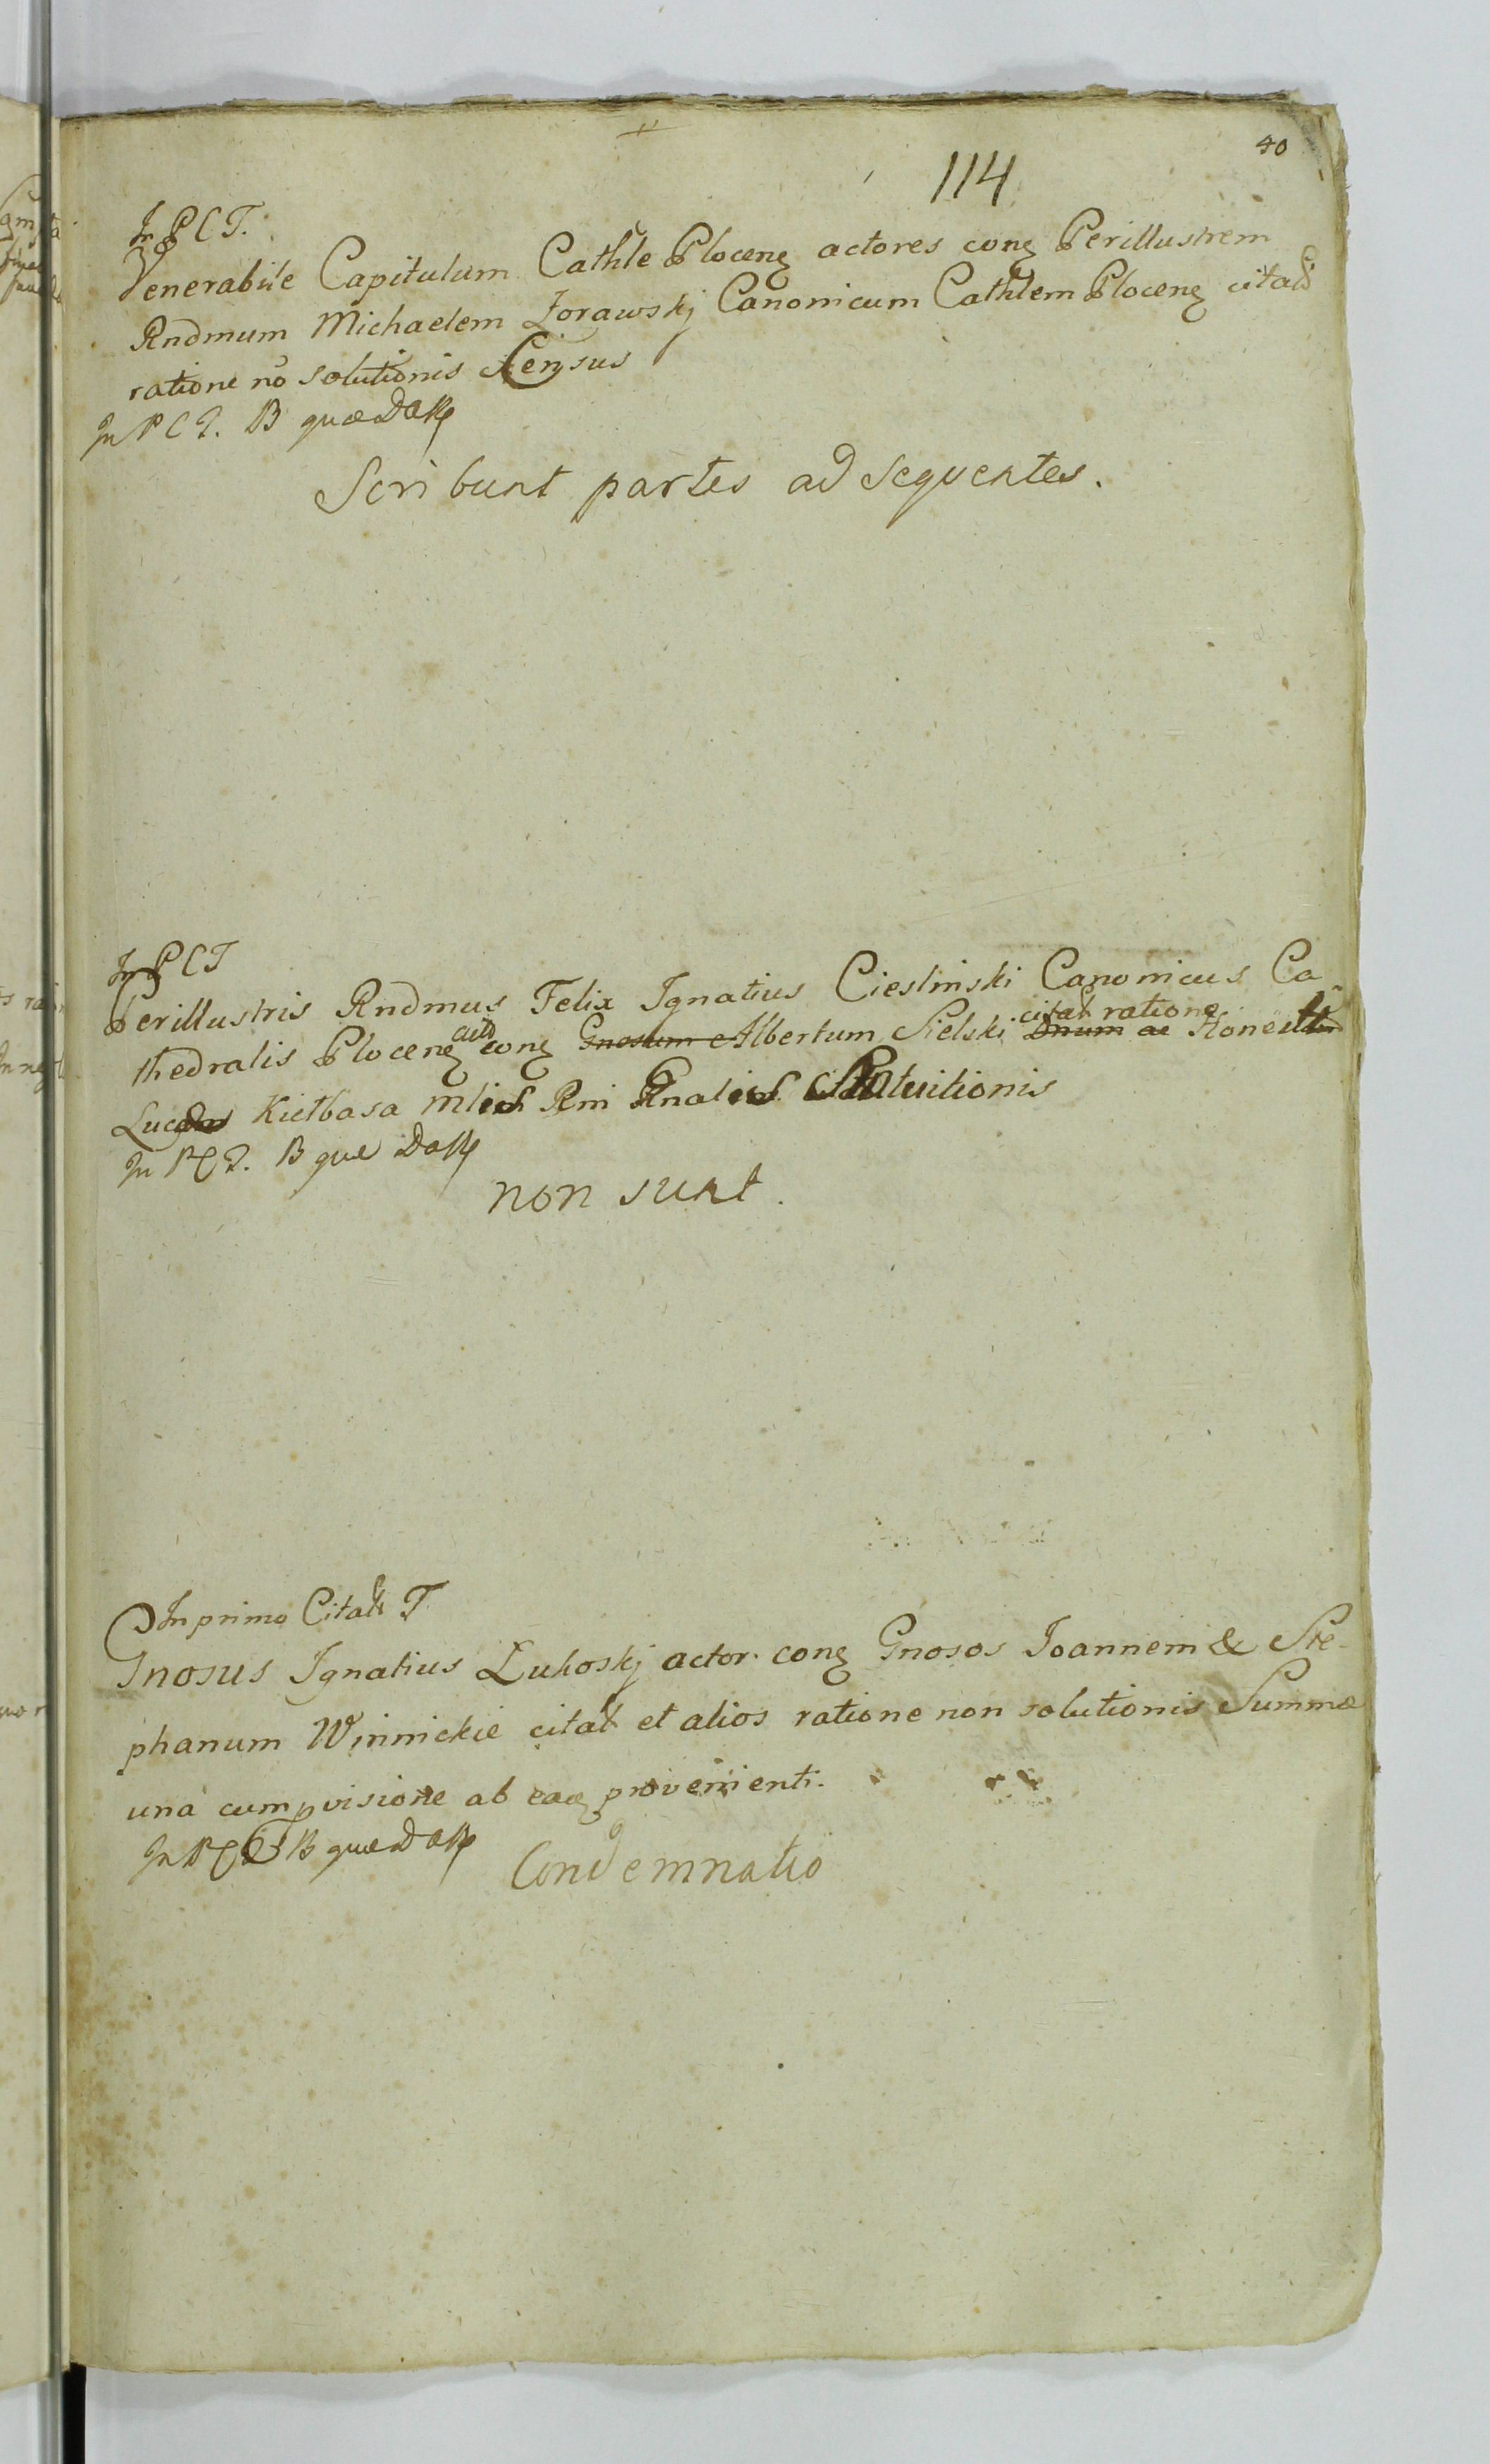 40
114
In P C T.
Venerabile Capitulum Cathle Plocen actores con Perillustrem
Rndmum Michaelem Zorawskj Canonicum Cathlem Plocen citat
ratione no solutionis Census
In P C T. B quæ
Scribunt partes ad sequentes.
In P C T
Perillustris Rndmus Felix Ignatius Ciesliński Canonicus Ca
citat ratione
thedralis Plocen con Gnosum Albertum Sielski Dnum ac Honesti
Lucæ Kiełbasa Rni Statuitionis
In P C T. B que
non sunt.
In primo Citat T
Gnosus Ignatius Lukoskj actor. con Gnosos Joannem & Ste-
phanum Winnickie citat et alios ratione non solutionis Summæ
una cum pvisione ab eaq provenienti.
In P C T B quæ
Condemnatio